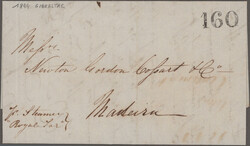 160
Messrs
Newton Gordon Cossart & Co
Madeira
Pr Steamer
Royal Tar